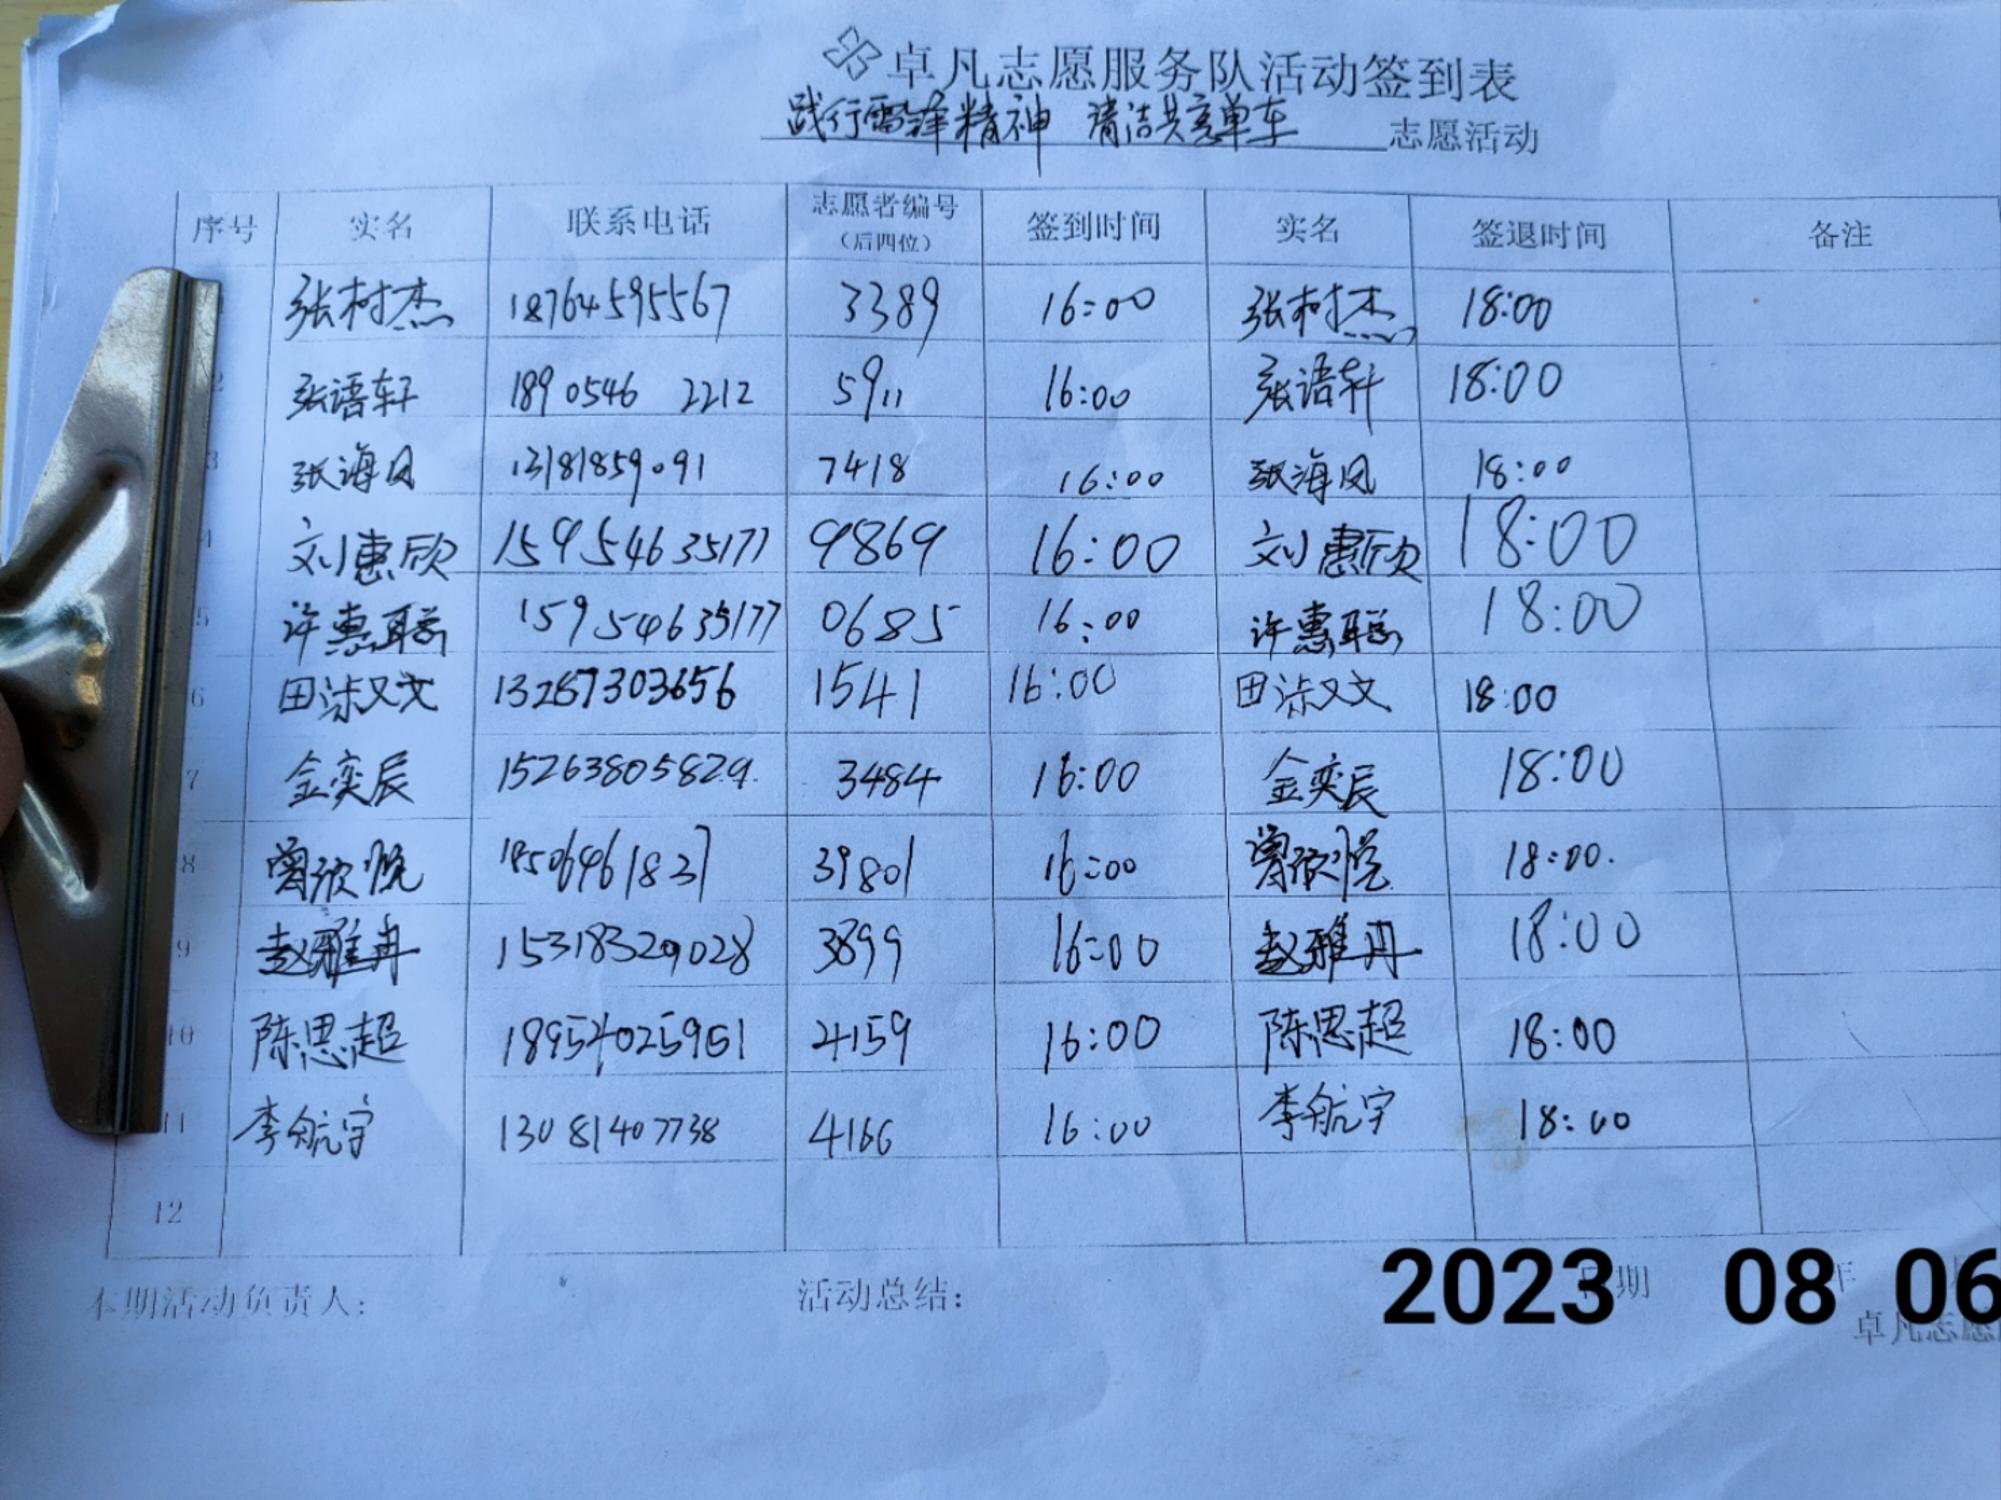 卓凡志愿服务队活动签到表
践行雷锋精神 清洁共享单车 志愿活动
序号 实名 联系电话 志愿者编号(后四位) 签到时间 实名 签退时间 备注
1 张树杰 18764595567 3389 16:00 张树杰 18:00
2 张语轩 189 0546 2212 5911 16:00 张语轩 18:00
3 张海凤 13181859091 7418 16:00 张海凤 18:00
4 刘惠欣 15954635177 9869 16:00 刘惠欣 18:00
5 许惠聪 15954635177 0685 16:00 许惠聪 18:00
6 田 13287303656 1541 16:00 田 18:00
7 金奕辰 15263805829 3484 16:00 金奕辰 18:00
8 曾欣悦 39801 16:00 曾欣悦 18:00
9 赵雅冉 15318329028 3899 16:00 赵雅丹 18:00
10 陈思超 18954025951 4159 16:00 陈思超 18:00
11 李航宇 13081407738 4166 16:00 李航宇 18:00
12
本期活动负责人: 活动总结: 日期 年
2023 08 06
卓凡志愿